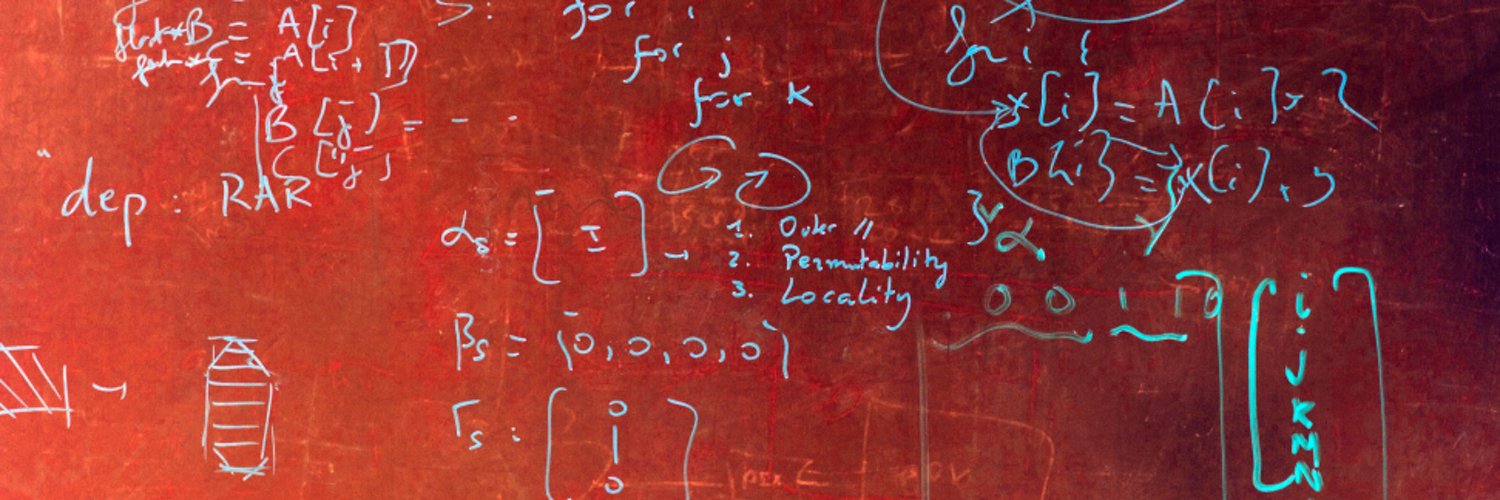 = A[i]
= A[i,
B[j] = - - -
C[j]
"dep : RAR
S: for i
for j
for k
αs = [ I ] →
1. Outer //
2. Permutability
3. Locality
βs = (0,0,0,0)
Γs : 0
1
0
for i {
X[i] = A[i] + 2
B[i] = X[i] + 3
}
α
0 0 1 1 0
i
j
k
M
N